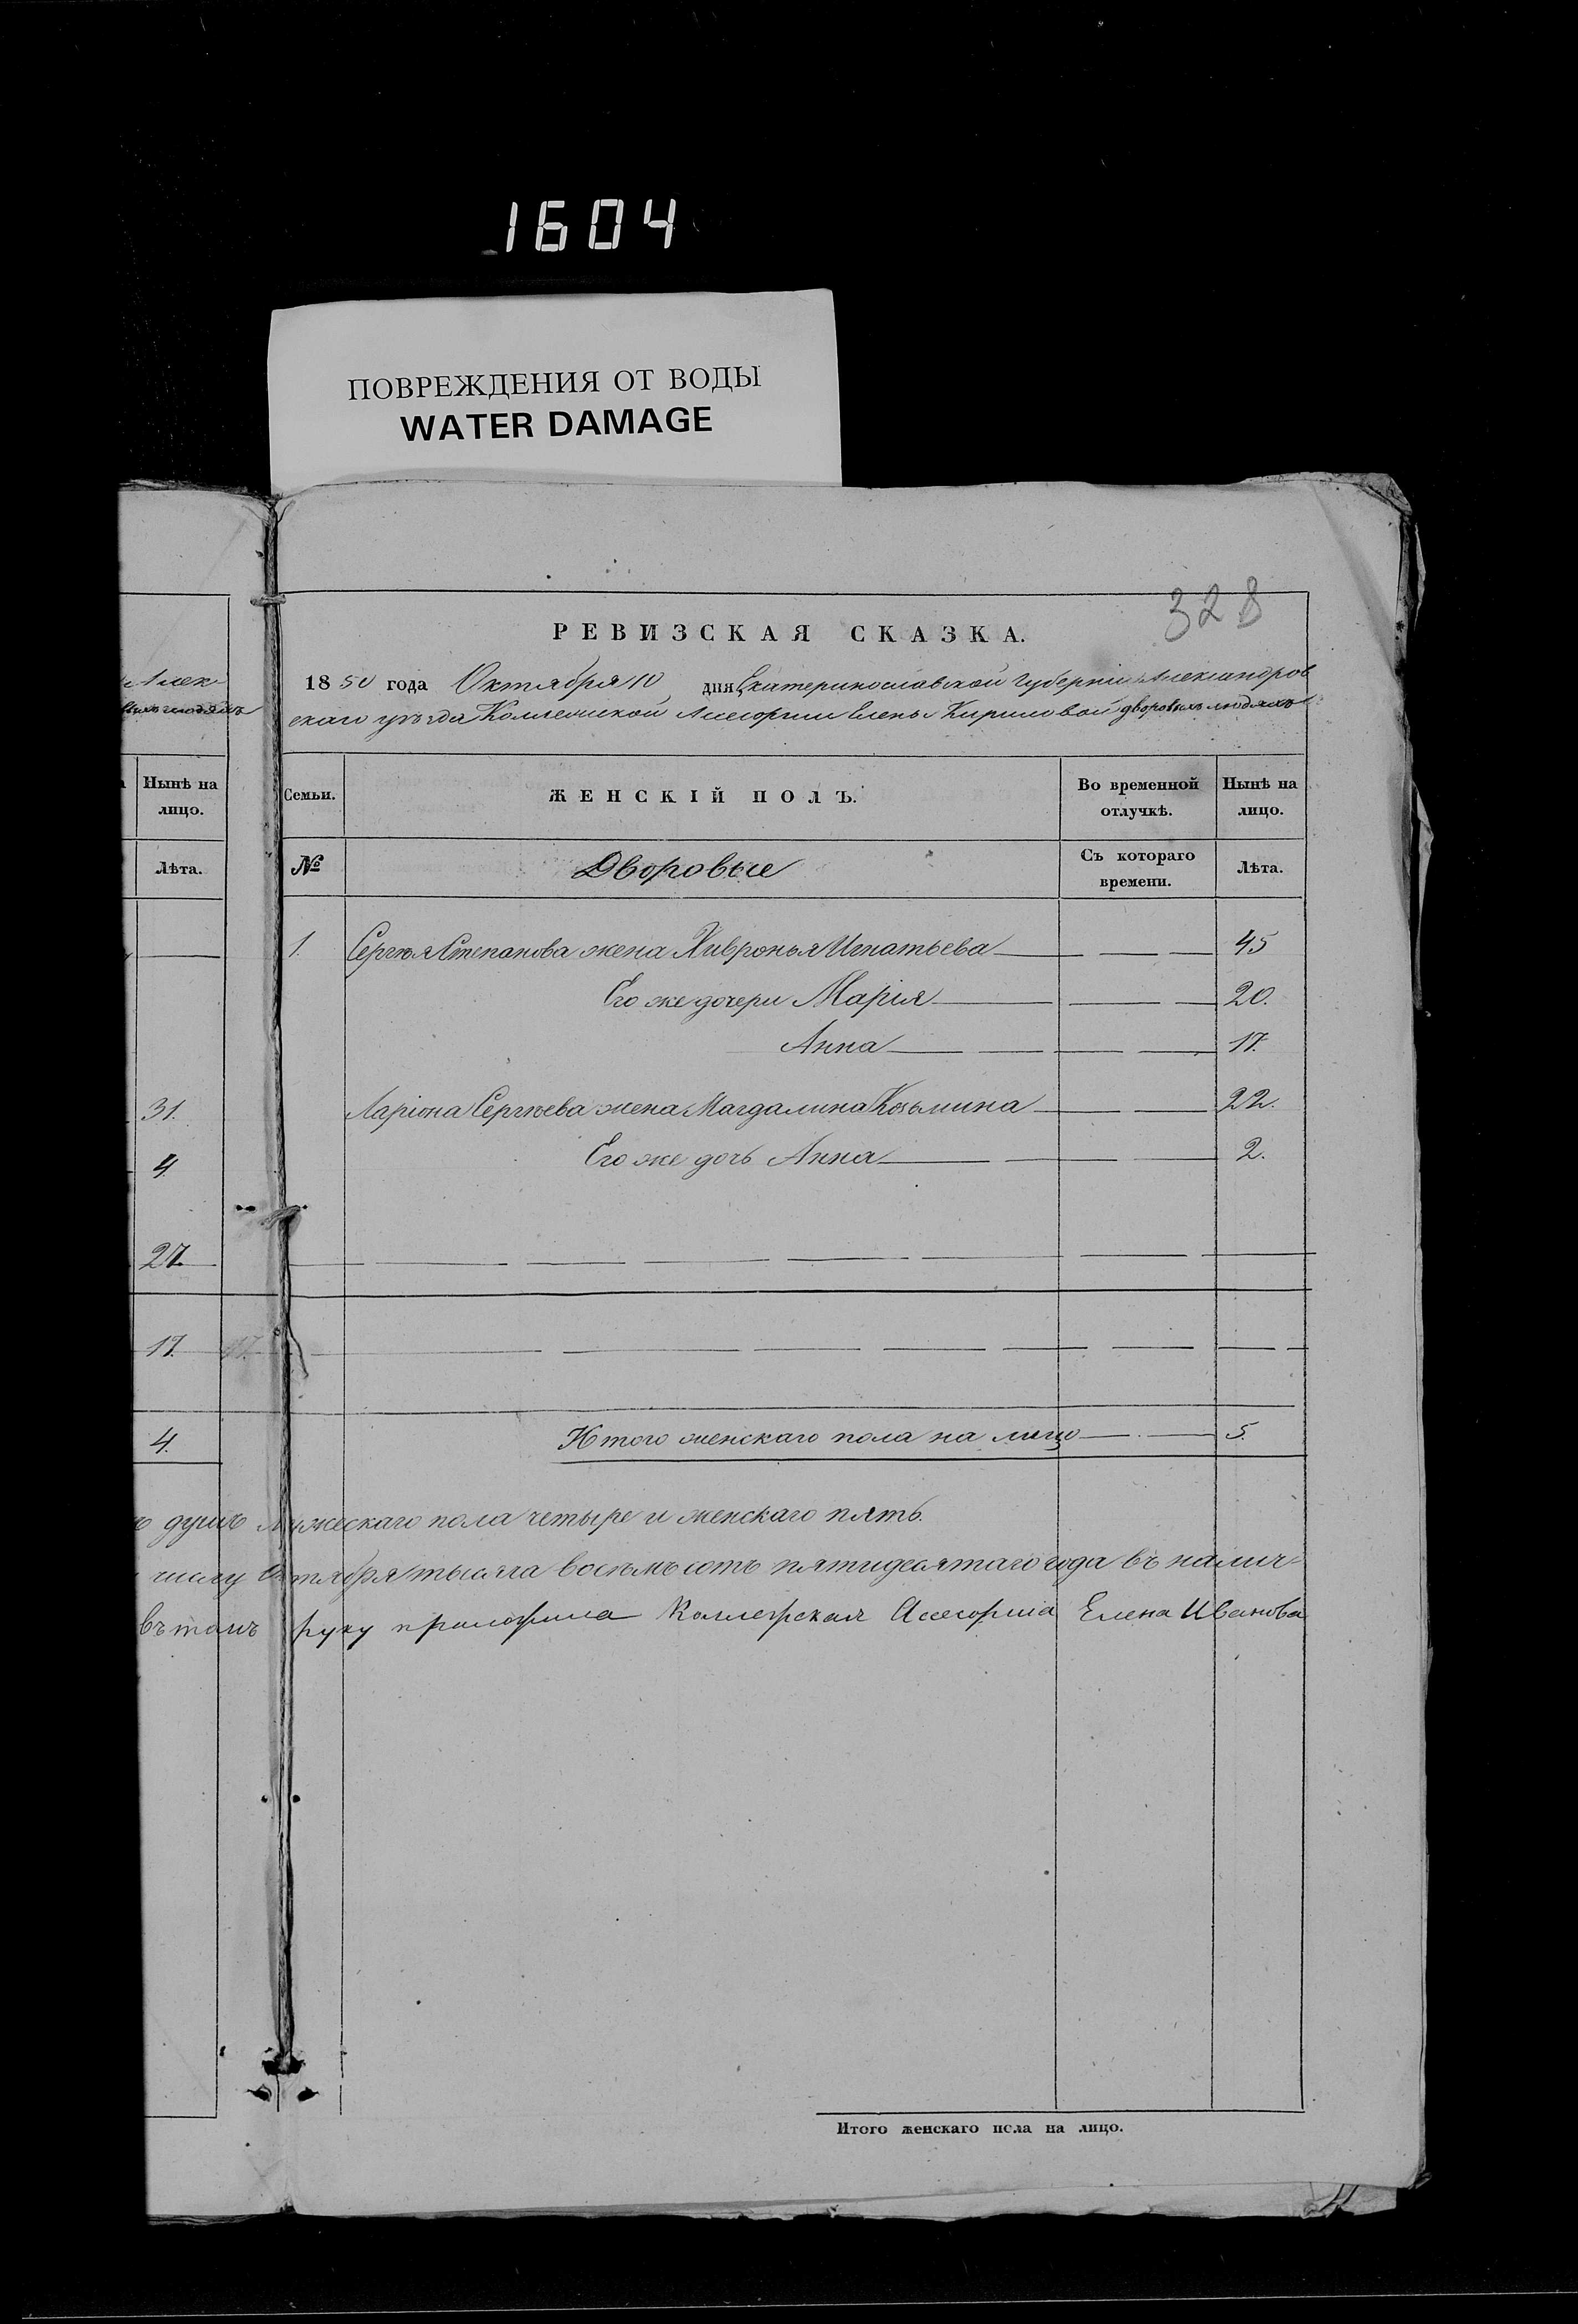 1604
ПОВРЕЖДЕНИЯ ОТ ВОДЫ
WATER DAMAGE
328
РЕВИЗСКАЯ СКАЗКА.
Алек
1850 года Октября 10 дня Екатеринославской Губерніи Александров
скаго уѣзда Коллежской Асесорши Елены Кириловой дворовыхъ людяхъ
Нынѣ на
лицо.
Семьи.
ЖЕНСКІЙ ПОЛЪ.
Во временной
отлучкѣ.
Нынѣ на
лицо.
Лѣта.
№
Дворовые
Съ котораго
времени.
Лѣта.
1. Сергѣя Степанова жена Хивронья Игнатьева 45
Его же дочери Марія 20.
Анна 17.
31. Ларіона Сергѣева жена Магдалина Козьмина 22.
4. Его же дочь Анна 2.
27.
17.
4. Итого женскаго пола на лицо 5.
ъ душъ мужескаго пола четыре и женскаго пять.
числу Октября тысяча восемьсотъ пятидесятаго года въ налич-
въ томъ руку приложила Коллежская Асесорша Елена Иванова
Итого женскаго пола на лицо.